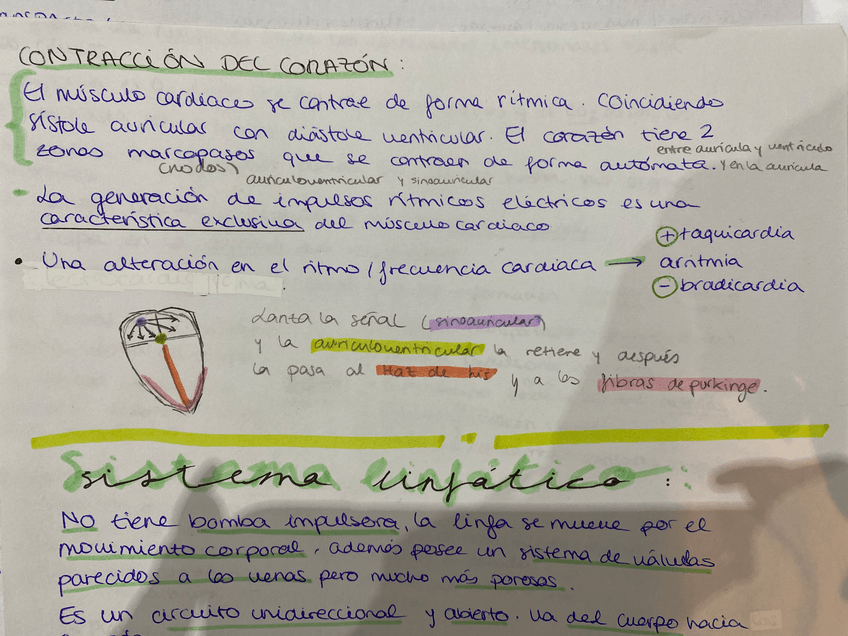 CONTRACCIÓN DEL CORAZÓN:
El músculo cardiaco se contrae de forma rítmica. Coincidiendo
sístole auricular con diástole ventricular. El corazón tiene 2
zonas marcapasos que se contraen de forma autómata. entre aurícula y ventrículo
(nodos) y en la aurícula
auriculoventricular y sinoauricular
- La generación de impulsos rítmicos eléctricos es una
característica exclusiva del músculo cardiaco
• Una alteración en el ritmo/frecuencia cardiaca → arritmia
+ taquicardia
- bradicardia
Lanza la señal (sinoauricular)
y la auriculoventricular la retiene y después
la pasa al Haz de his y a las fibras de purkinge.
sistema linfático:
No tiene bomba impulsora, la linfa se mueve por el
movimiento corporal, además posee un sistema de válvulas
parecidos a las venas pero mucho más porosas.
Es un circuito unidireccional y abierto. Va del cuerpo hacia